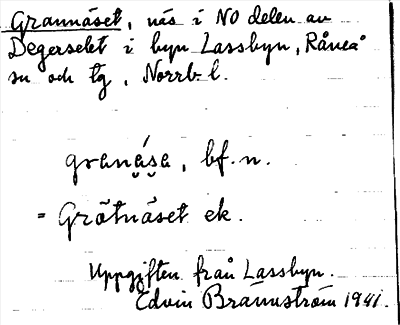 Grannäset, näs i NO delen av
Degerselet i byn Lassbyn, Råneå
sn och tg, Norrb. l.
granása, bf. n.
= Grötnäset ek.
Uppgiften från Lassbyn.
Edvin Brännström 1941.